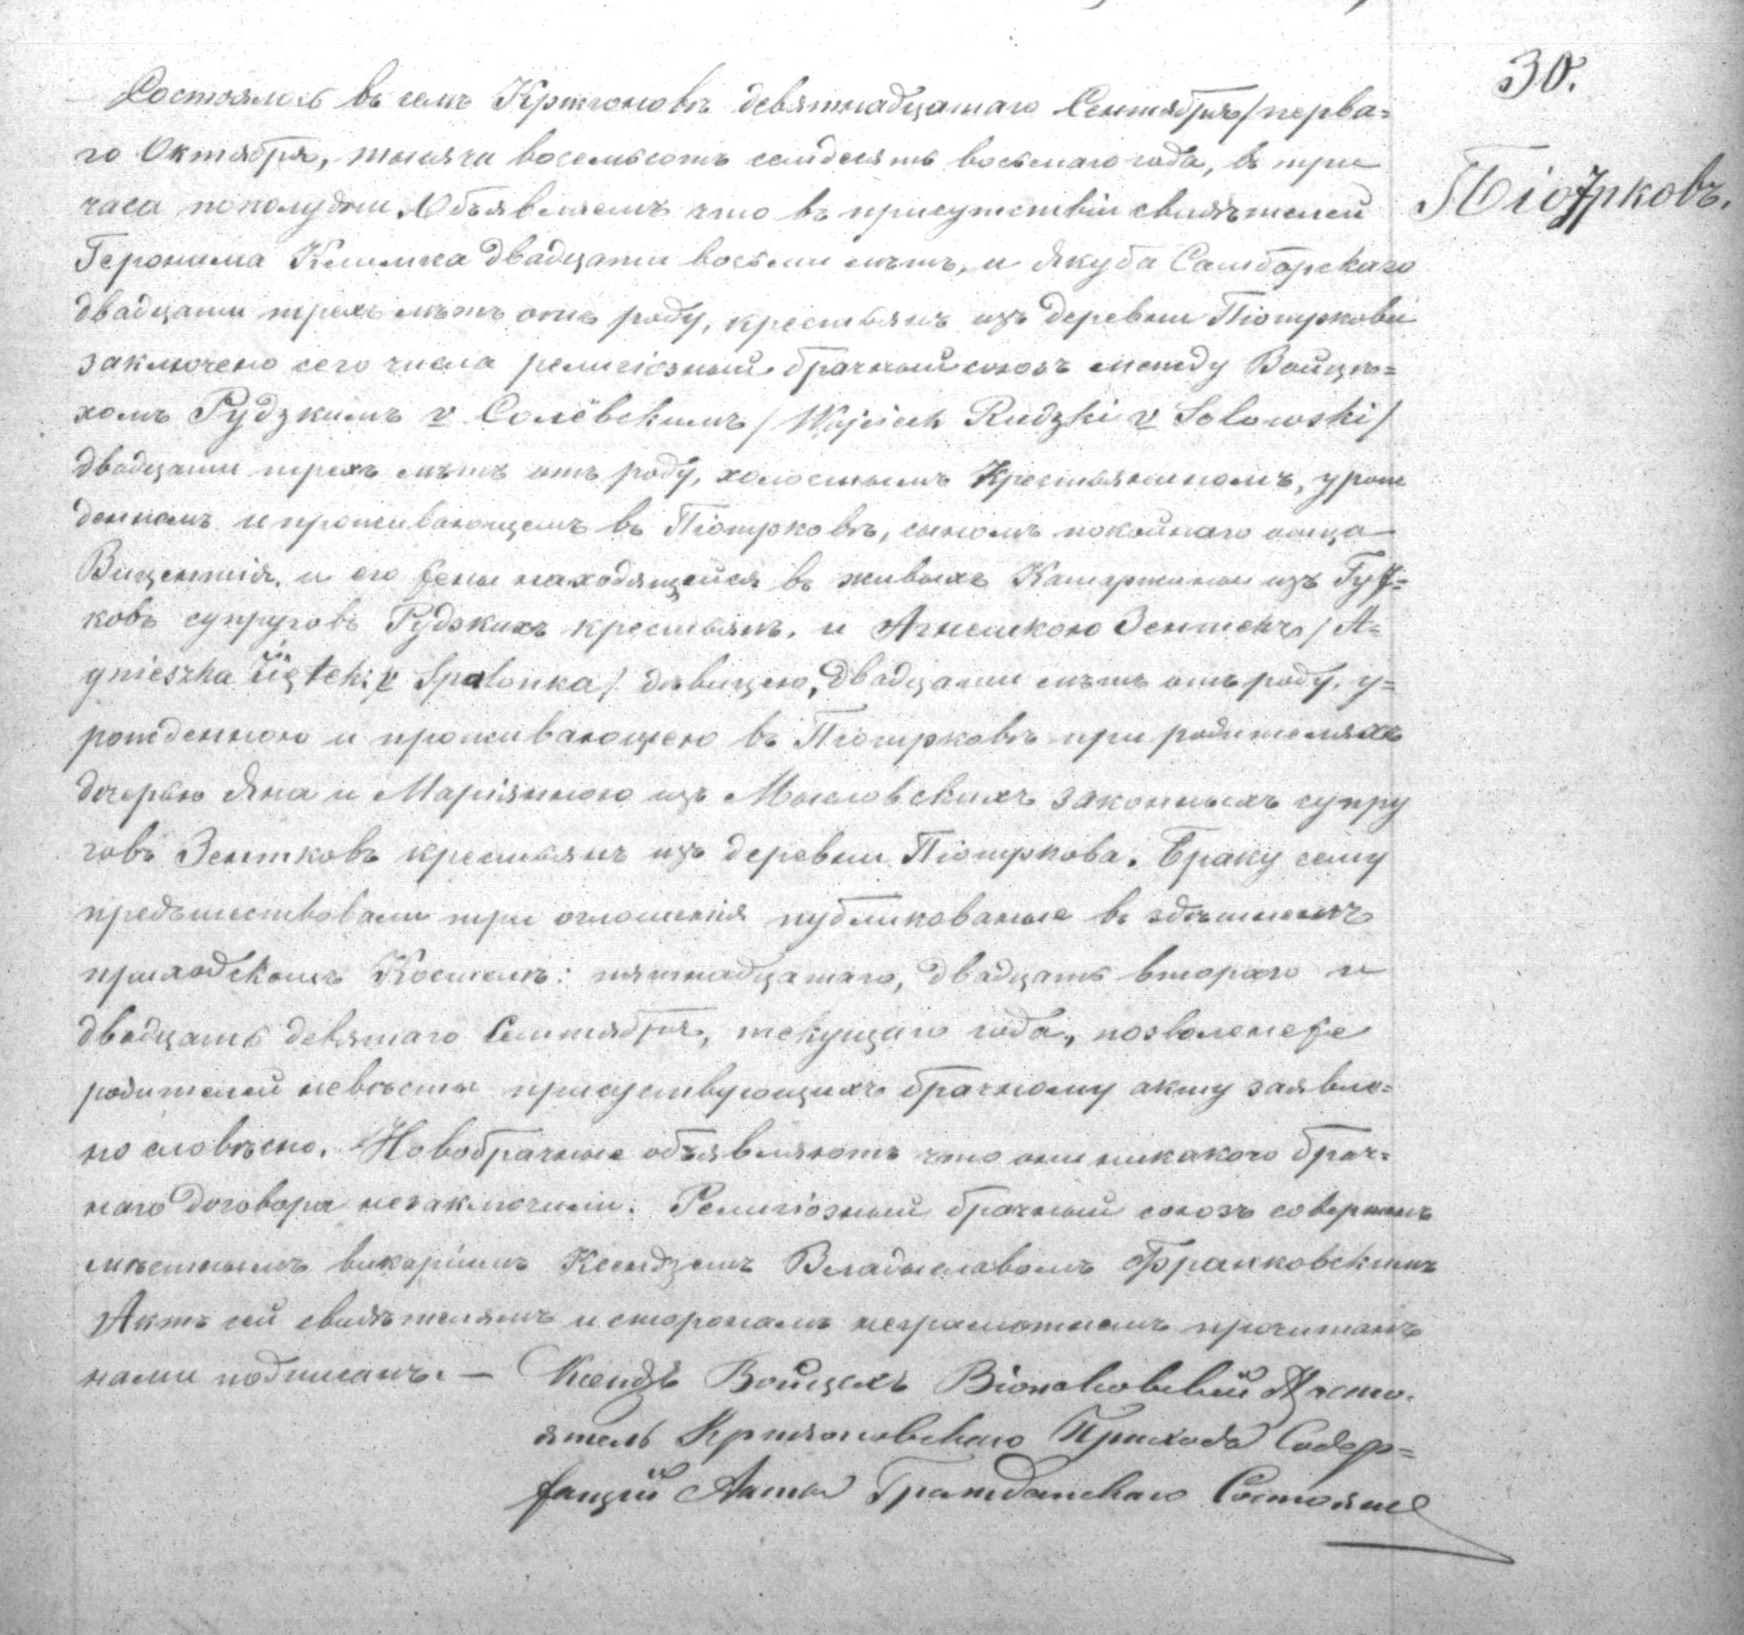 30.
Піотрковъ.
Состоялось въ селѣ Кртоновѣ девятнадцатаго Сентября/перва=
го Октября, тысяча восемьсотъ семдесятъ восьмаго года, въ три
часа пополудни. Объявляемъ что въ присутствіи свидѣтелей
Геронима Климка двадцати восьми лѣтъ, и Якуба Самборскаго
двадцати трехъ лѣтъ отъ роду, крестьянъ изъ деревни Піотркова
заключено сего числа религіозный брачный союзъ между Войцѣ=
хомъ Рудзкимъ v Солёвскимъ /Wojciech Rudzki v Solowski/
двадцати трехъ лѣтъ отъ роду, холостымъ Крестьяниномъ, урож
деннымъ и проживающемъ въ Піотрковѣ, сыномъ покойнаго отца
Вицентія, и его жены находящейся въ живыхъ Катаржины изъ
ковъ супруговъ Рудзкихъ крестьянъ, и Агнешкою Зентекъ /A=
gnieszka Ziętek v Spalonka/ дѣвицею, двадцати лѣтъ отъ роду, у=
рожденною и проживающею въ Піотрковѣ при родителяхъ
дочерью Яна и Маріянною изъ Мысловскихъ законныхъ супру
говъ Зентковъ крестьянъ изъ деревни Піотркова. Браку сему
предшествовали три оглошенія публикованые въ здѣшнемъ
приходскомъ Костелѣ: пятнадцатаго, двадцать втораго и
двадцать девятаго Сентября, текущаго года, позволенеже
родителей невѣсты присуствующихъ брачному акту заявле=
но словѣсно. Новобрачные объявляютъ что они никакого брач=
наго договора незаключили. Религіозный брачный союзъ совершенъ
мѣстнымъ викаріимъ Ксендземъ Владыславомъ Франковскимъ
Актъ сей свидѣтелямъ и сторонамъ неграмотнымъ прочитанъ
нами подписанъ. — Ксендзъ Войцехъ Насто=
ятель Прихода Содер=
жащій Акты Гражданскаго Состоянія